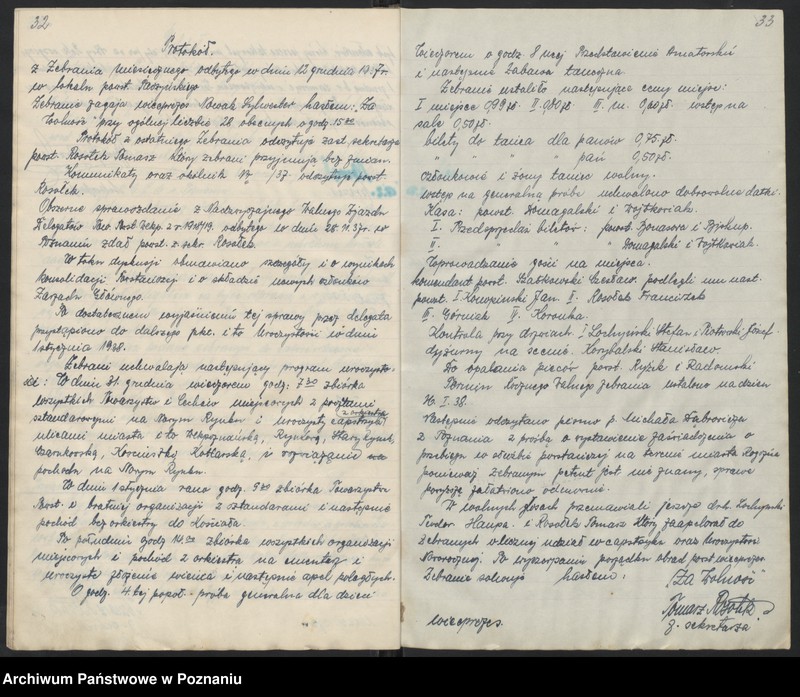 32
Protokół.
z Zebrania miesięcznego odbytego w dniu 12 grudnia 1937r
w lokalu powst.
Zebranie zagaja wiceprezes Nowak Sylwester hasłem: "Za
Wolność" przy ogólnej liczbie 28 obecnych o godz. 15
Protokół z ostatniego Zebrania odczytuje zast. sekretarza
powst. Rosolek Tomasz który zebrani przyjmują bez zmian.
Komunikaty oraz okólnik № /37 odczytuje powst.
Rosolek.
Obszerne sprawozdanie z Nadzwyczajnego Walnego Zjazdu
Delegatów Powst. Wlkp. z r. 1918/19. odbytego w dniu 28.11.37r. w
Poznaniu zdał powst. z. sekr. Rosolek.
W toku dyskusji obmawiano szczegóły i o wynikach
konsolidacji Powstańczej i o składzie nowych członków
Zarządu Głównego.
Po dostatecznem wyjaśnieniu tej sprawy przez delegata
przystąpiono do dalszego pkt. i to Uroczystości w dniu
1 stycznia 1938.
Zebrani uchwalają następujący program uroczysto-
ści: W dniu 31. grudnia wieczorem godz: 7 30 zbiórka
wszystkich Towarzystw i Cechów miejscowych z pocztami
(z orkiestrą)
sztandarowymi na Nowym Rynku i uroczysty capstrzyk
ulicami miasta i to Wlkpoznańską, Rynkową, Stary Rynek,
Czarnkowską, Kościelną Kotlarską, i rozwiązanie
pochodu na Nowym Rynku.
W dniu 1 stycznia rano godz. zbiórka Towarzystw
Powst. i bratniej organizacji z sztandarami i następnie
pochód bez orkiestry do Kościoła.
Po południu godz 14 zbiórka wszystkich organizacji
miejscowych i pochód z orkiestrą na cmentarz i
uroczyste złożenie wieńca i następnie apel poległych.
O godz. 4. tej popoł. próba generalna dla dzieci
33
Wieczorem o godz 8 mej Przedstawienie Amatorskie
i następnie Zabawa taneczna.
Zebranie ustaliło następujące ceny miejsc:
I miejsce 0,99 zł. II. 0,80 zł. III. m. 0,60 zł. wstęp na
salę 0,50 zł.
bilety do tańca dla panów 0,75 zł.
" " " " pań 0,50 zł.
członkowie i żony taniec wolny.
wstęp na generalną próbę uchwalono dobrowolne datki.
Kasa: powst. Domagalski i Wojtkowiak.
I. Przedsprzedaż biletów: powst. i
II. " " " Domagalski i Wojtkowiak.
Wprowadzanie gości na miejsca.
komendant powst. Czesław. podlegli mu nast.
powst. I Konopiński Jan. II. Rosolek Franciszek
III. Górniak IV. Heronka.
Kontrola przy drzwiach I Stefan i Piotrowski Józef.
dyżurny na scenie. Korybalski Stanisław.
Do opalania pieców powst. i Radomski
Termin Rocznego Walnego Zebrania ustalono na dzień
16. I. 38.
Następnie odczytano pismo p. Michała Dąbrowicza
z Poznania z prośbą o wystawienie zaświadczenia o
przebiegu w służbie powstańczej na terenie miasta Rogoźna
ponieważ Zebranym petent jest nie znany, sprawę
powyższą załatwiono odmownie.
W wolnych głosach przemawiali jeszcze drh.
Teodor Haupa. i Rosolek Tomasz który zaapelował do
Zebranych o liczny udział w capstrzyku oraz Uroczystości
Noworocznej. Po wyczerpaniu porządku obrad powst. wiceprezes
Zebranie solwuje hasłem: "Za Wolność"
Tomasz Rosolek
z. sekretarza
wiceprezes.
Archiwum Państwowe w Poznaniu